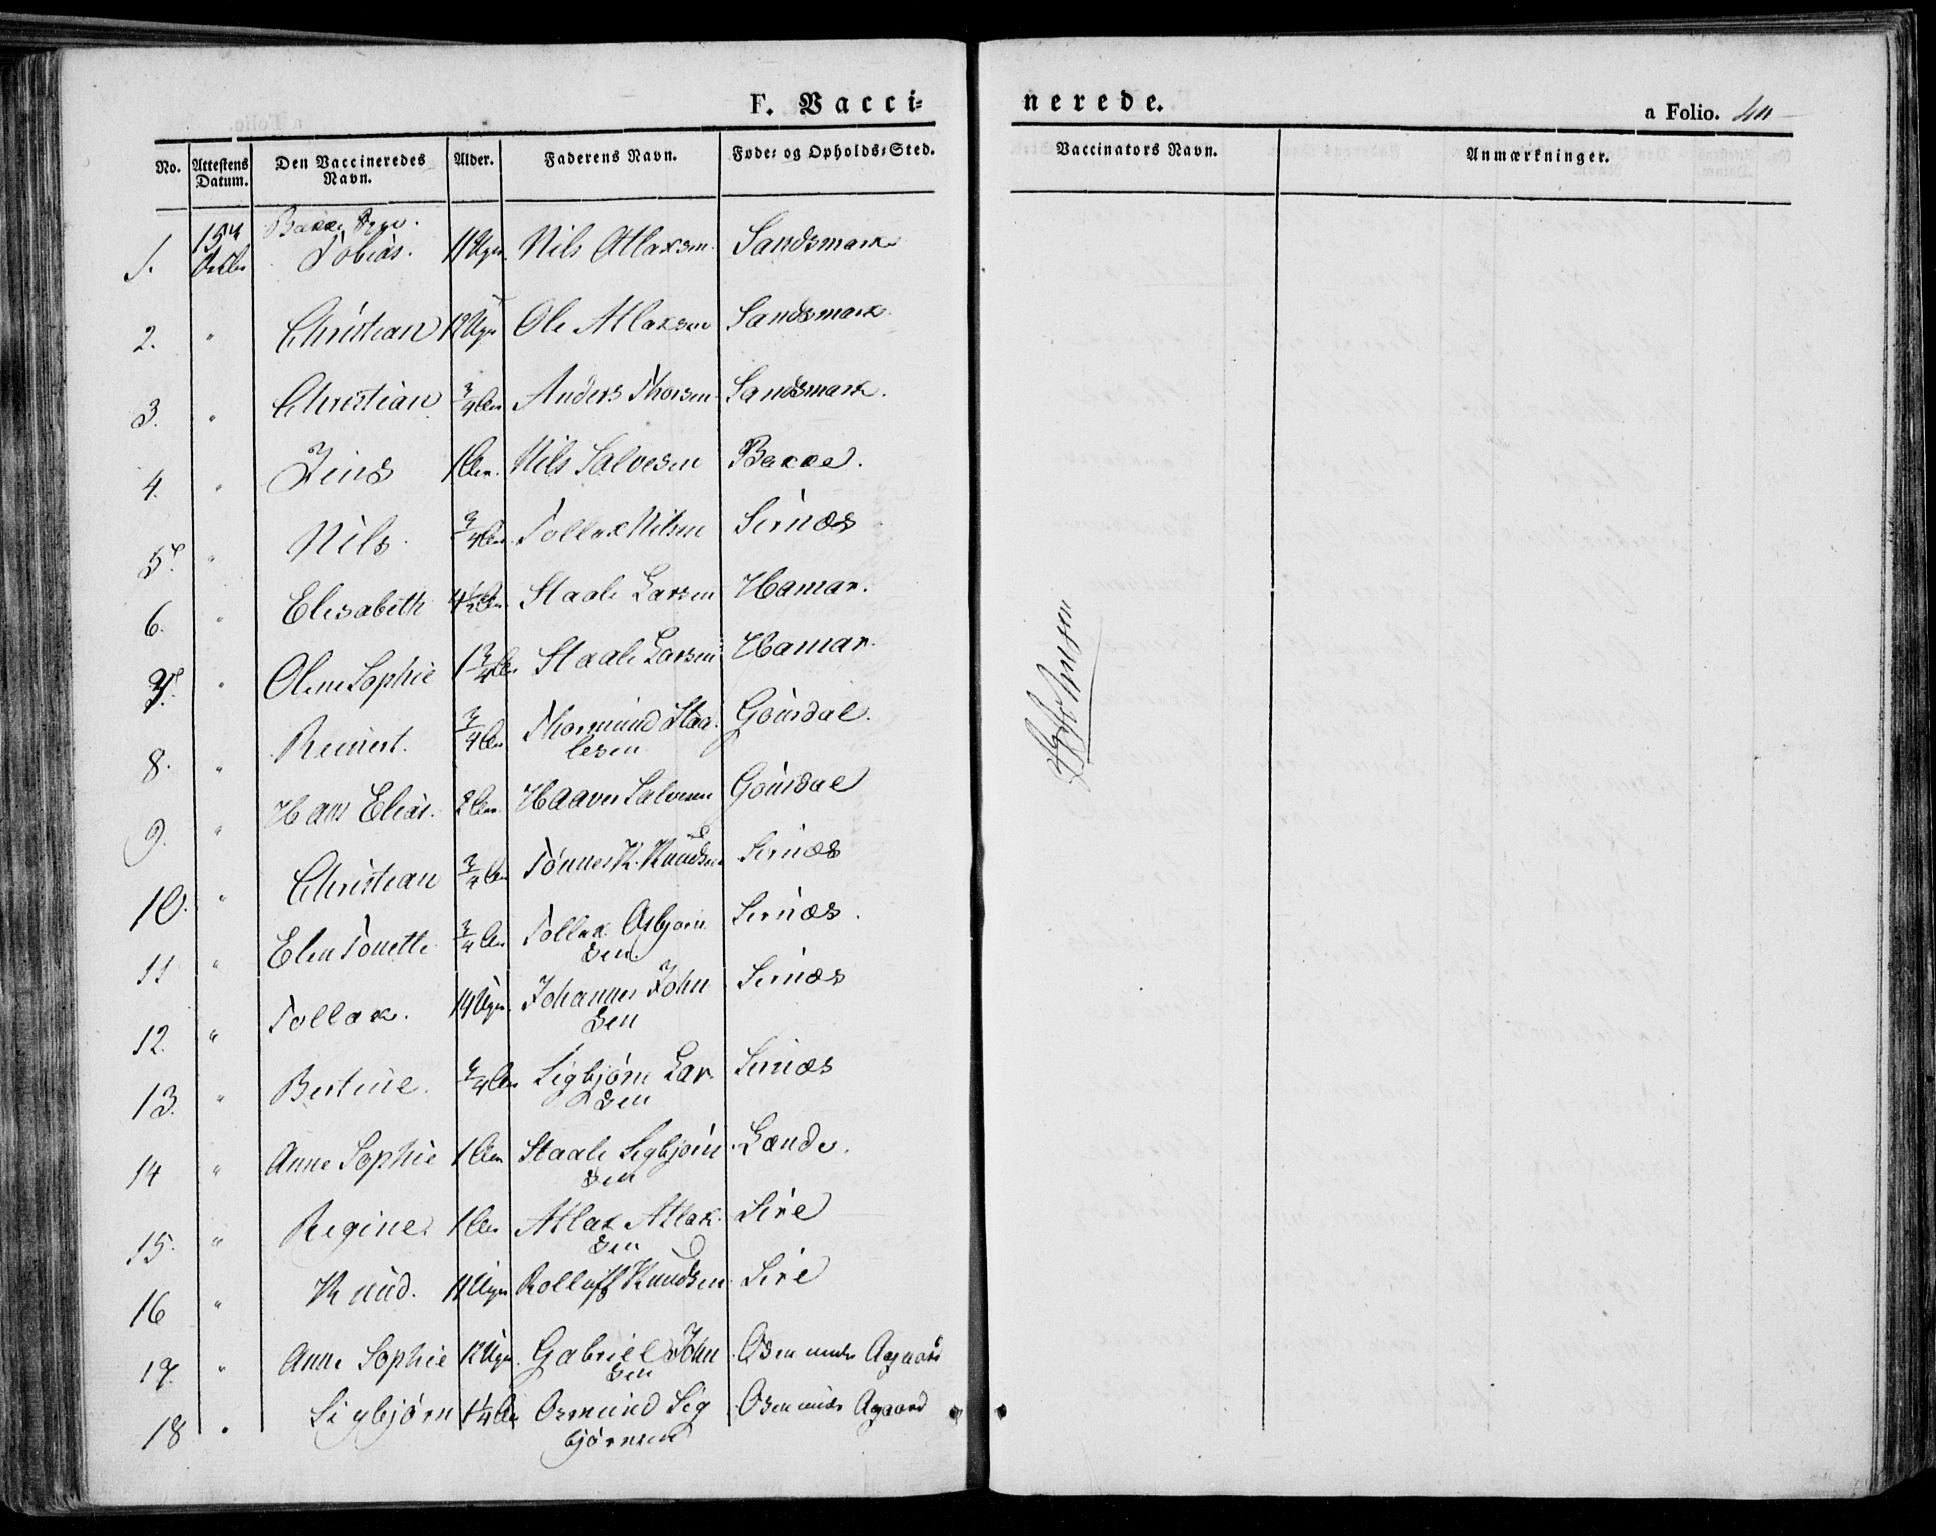 F. Vacci=
nerede.
a Folio. 40
No. Attestens Datum. Den Vaccineredes Navn. Alder. Faderens Navn. Føde= og Opholds=Sted. Vaccinators Navn. Anmærkninger.
Bakke Sogn.
1. 15de Octbr Tobias. 11 Uger. Nils Atlaksen Sandsmark
2. " Christian 12 Uger Ole Atlaksen Sandsmark
3. " Christian 3/4 Aar Anders Thorsen Sandsmark.
4. " Jens 1 Aar. Nils Salvesen Bakke.
5. " Nils. 3/4 Aar Tollak Nilsen Sirnæs
6. " Elisabeth 4 1/2 Aar Staale Larsen Hamar.
7. " Olene Sophie 1 3/4 Aar Staale Larsen Hamar.
8. " Reinert. 3/4 Aar Thormund Staa-
lesen Goursdal.
9. " Hans Elias. 2 Aar. Haaver Salvesen Goursdal
10. " Christian 3/4 Aar Tønnes K. Knudsen Sirnæs
11 " Elen Tonette 3/4 Aar Tollak Asbjørn
sen. Sirnæs.
12. " Tollak. 14 Uger. Johannes John
sen Sirnæs
13. " Bertine. 3/4 Aar Sigbjørn Lar
sen Sirnæs
14 " Anne Sophie 1 Aar Staale Sigbjørn
sen Lande.
15. " Regine. 1 Aar Atlak Atlak
sen Sire
16 " Knud. 11 Uger Rolluff Knudsen Sire
17. " Anne Sophie 12 Uger. Gabriel John
sen Osen under Aagaard
18 " Sigbjørn 1 1/4 Aar Osmund Sig
bjørnsen Osen under Aagaard